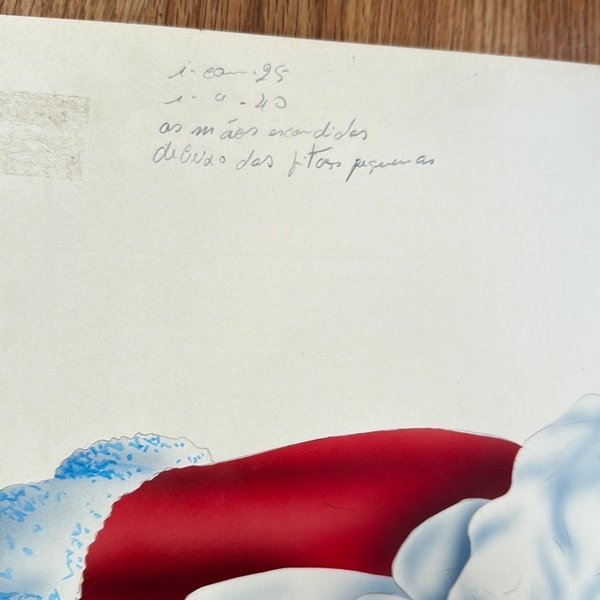 i. com. 25
i. a. 43
as mãos escondidas
debaixo das fitas pequenas